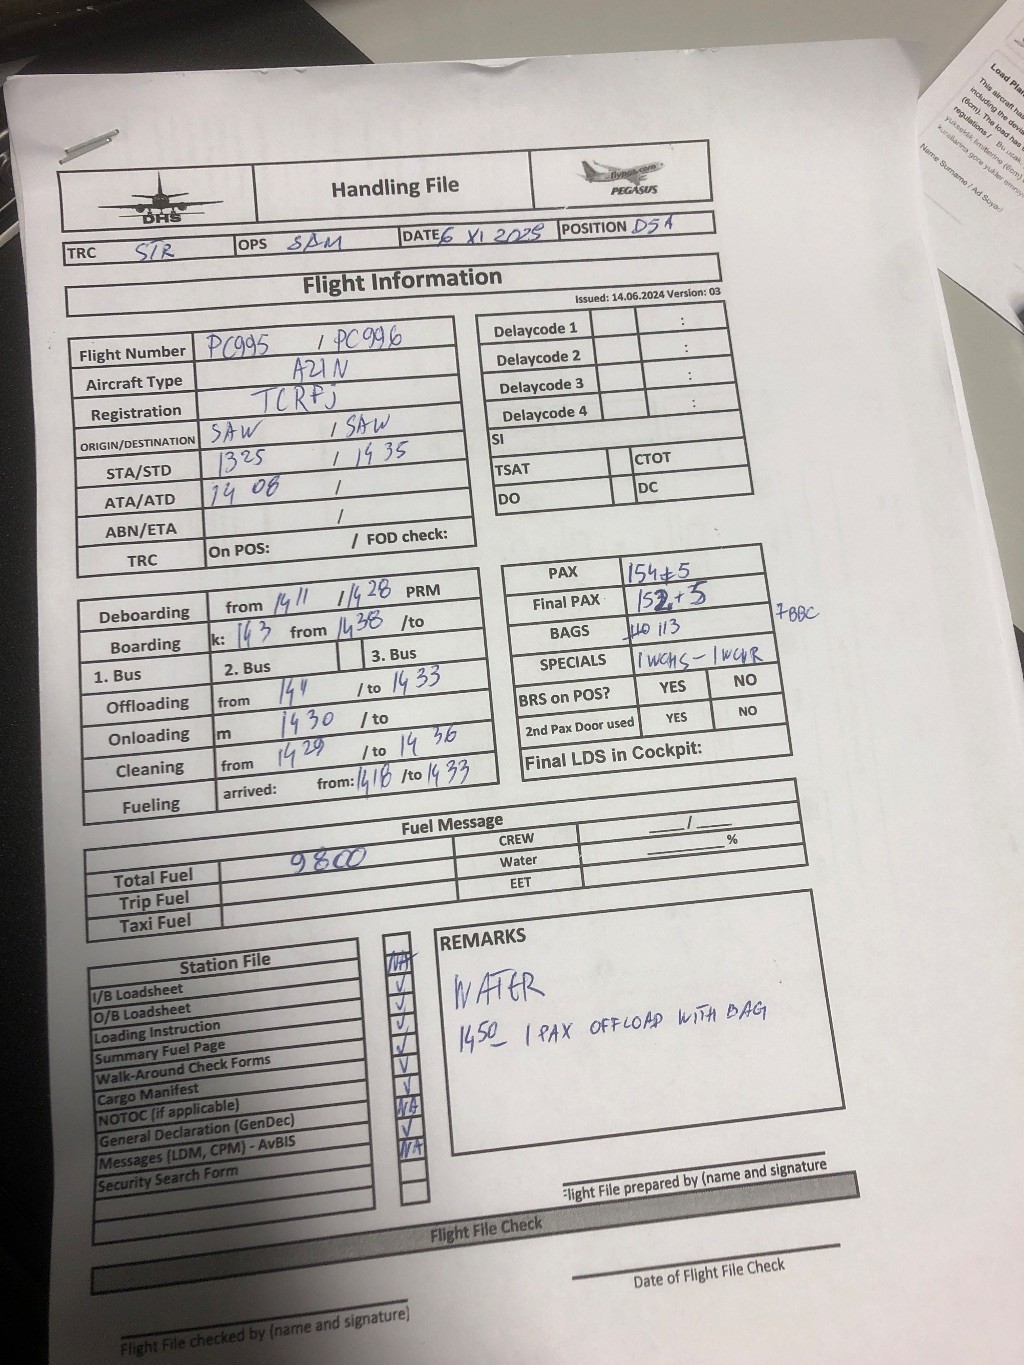 DHS
Handling File
flypgs.com
PEGASUS
TRC STR OPS SAM DATE 6 XI 2025 POSITION D5A
Flight Information
Issued: 14.06.2024 Version: 03
Flight Number PC995 / PC996
Aircraft Type A21N
Registration TCRFJ
ORIGIN/DESTINATION SAW / SAW
STA/STD 1325 / 14 35
ATA/ATD 14 08 /
ABN/ETA /
TRC On POS: / FOD check:
Delaycode 1 :
Delaycode 2 :
Delaycode 3 :
Delaycode 4 :
SI
TSAT CTOT
DO DC
Deboarding from 14 11 / 14 28 PRM
Boarding k: 143 from 1438 /to
1. Bus 2. Bus 3. Bus
Offloading from 14 / to 14 33
Onloading m 14 30 / to
Cleaning from 14 29 / to 14 36
Fueling arrived: from: 1418 /to 14 33
PAX 154+5
Final PAX 152+5
BAGS 113 7BBC
SPECIALS 1 WCHS - 1 WCHR
BRS on POS? YES NO
2nd Pax Door used YES NO
Final LDS in Cockpit:
Fuel Message
Total Fuel 9800 CREW ___/___
Trip Fuel Water ______%
Taxi Fuel EET
Station File
I/B Loadsheet NA
O/B Loadsheet ✓
Loading Instruction ✓
Summary Fuel Page ✓
Walk-Around Check Forms ✓
Cargo Manifest ✓
NOTOC (if applicable) ✓
General Declaration (GenDec) NA
Messages (LDM, CPM) - AvBIS ✓
Security Search Form NA
REMARKS
WATER
1450 1 PAX OFFLOAD WITH BAG
light File prepared by (name and signature
Flight File Check
Flight File checked by (name and signature)
Date of Flight File Check
Load Plan
This aircraft has
including the
(6cm). The load has
regulations / Bu uçak
Name Surname / Ad Soyad